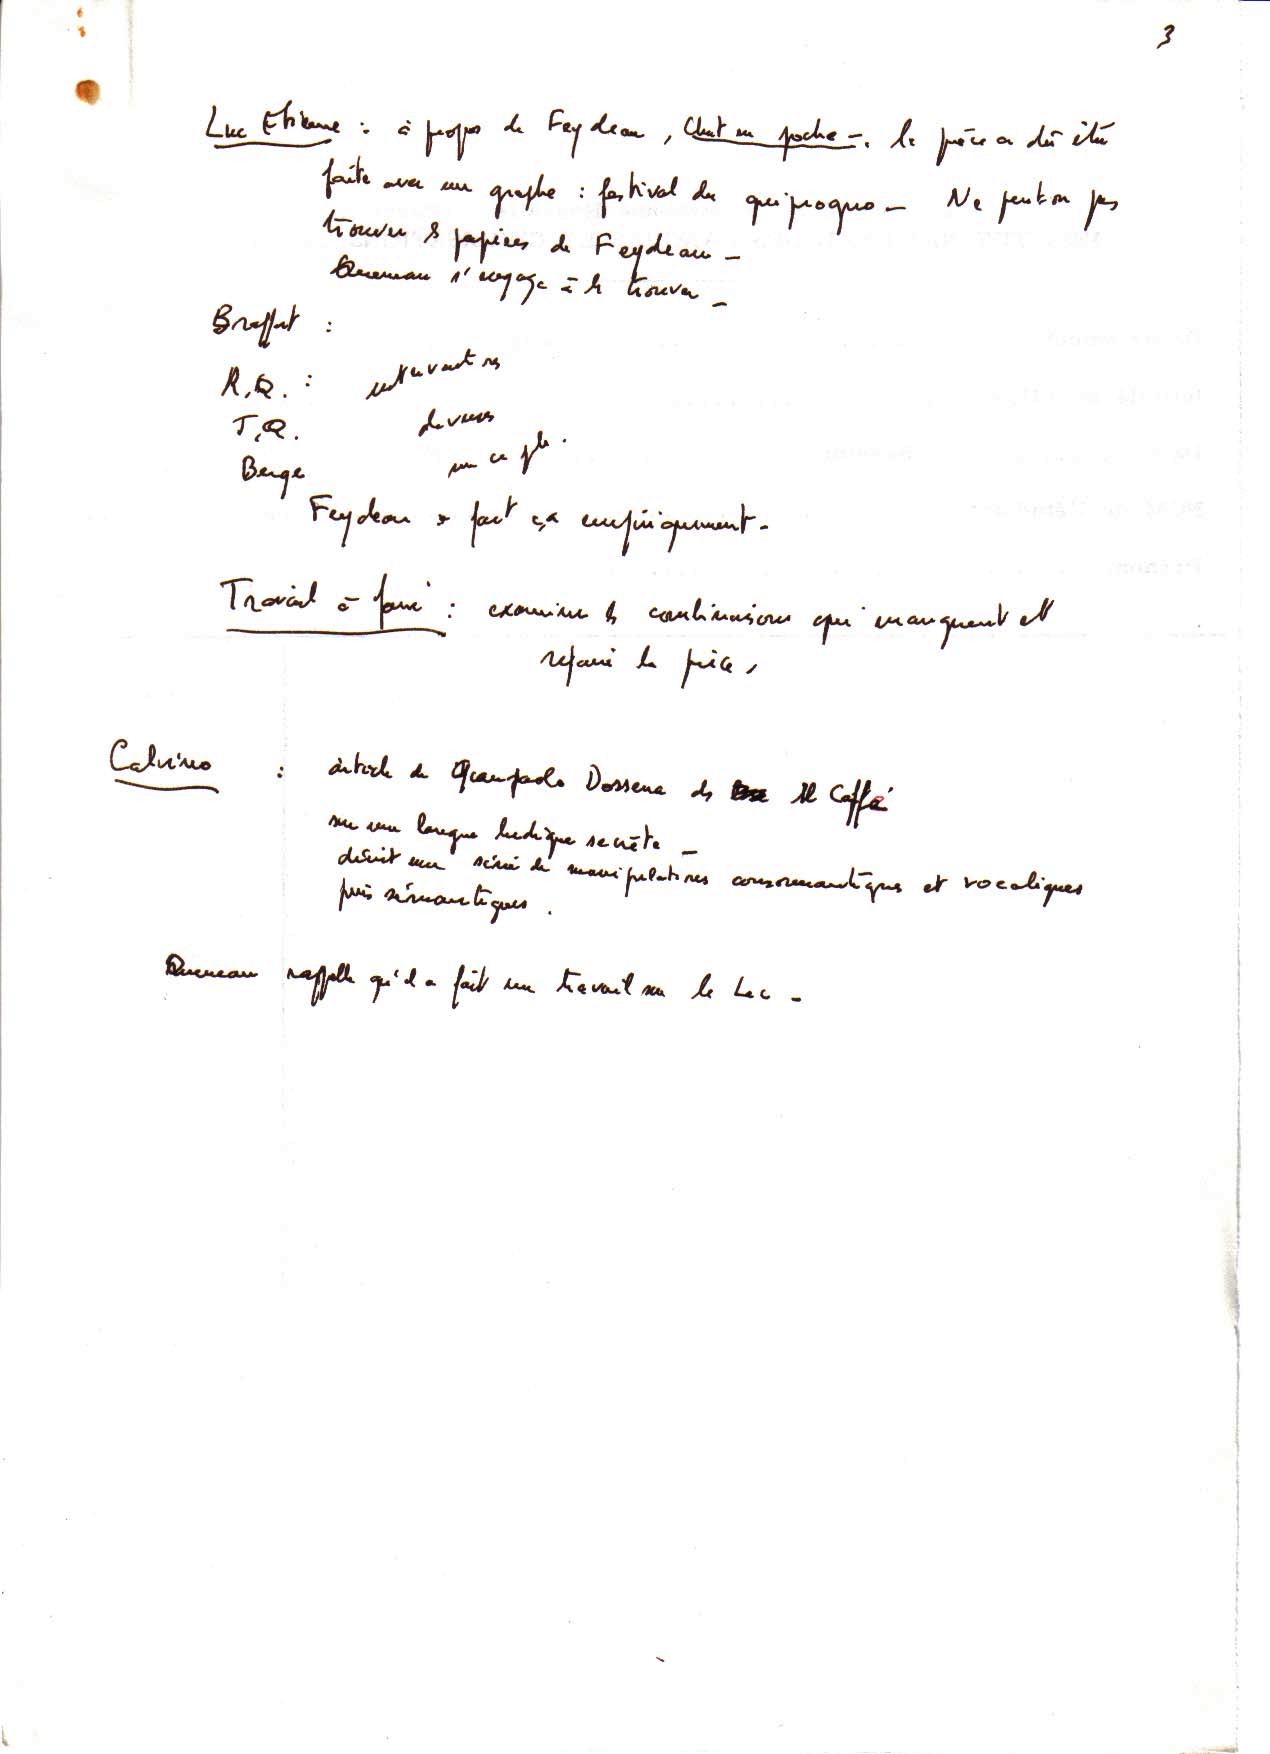 3
Luc Etienne : à propos de Feydeau, Chat en poche –. la pièce a dû être
faite avec un graphe : festival du quiproquo – Ne peut on pas
trouver ls papiers de Feydeau –
Queneau s'engage à ls trouver –
Braffort :
R.Q. : interventions
J.Q. diverses
Berge sur ce pb.
Feydeau a fait ça empiriquement –
Travail à faire : examiner ls combinaisons qui manquent et
refaire la pièce.
Calvino : article de Giampaolo Dossena ds Il Caffé
sur une langue ludique secrète –
décrit une série de manipulations consonnantiques et vocaliques
puis sémantiques.
Queneau rappelle qu'il a fait un travail sur le